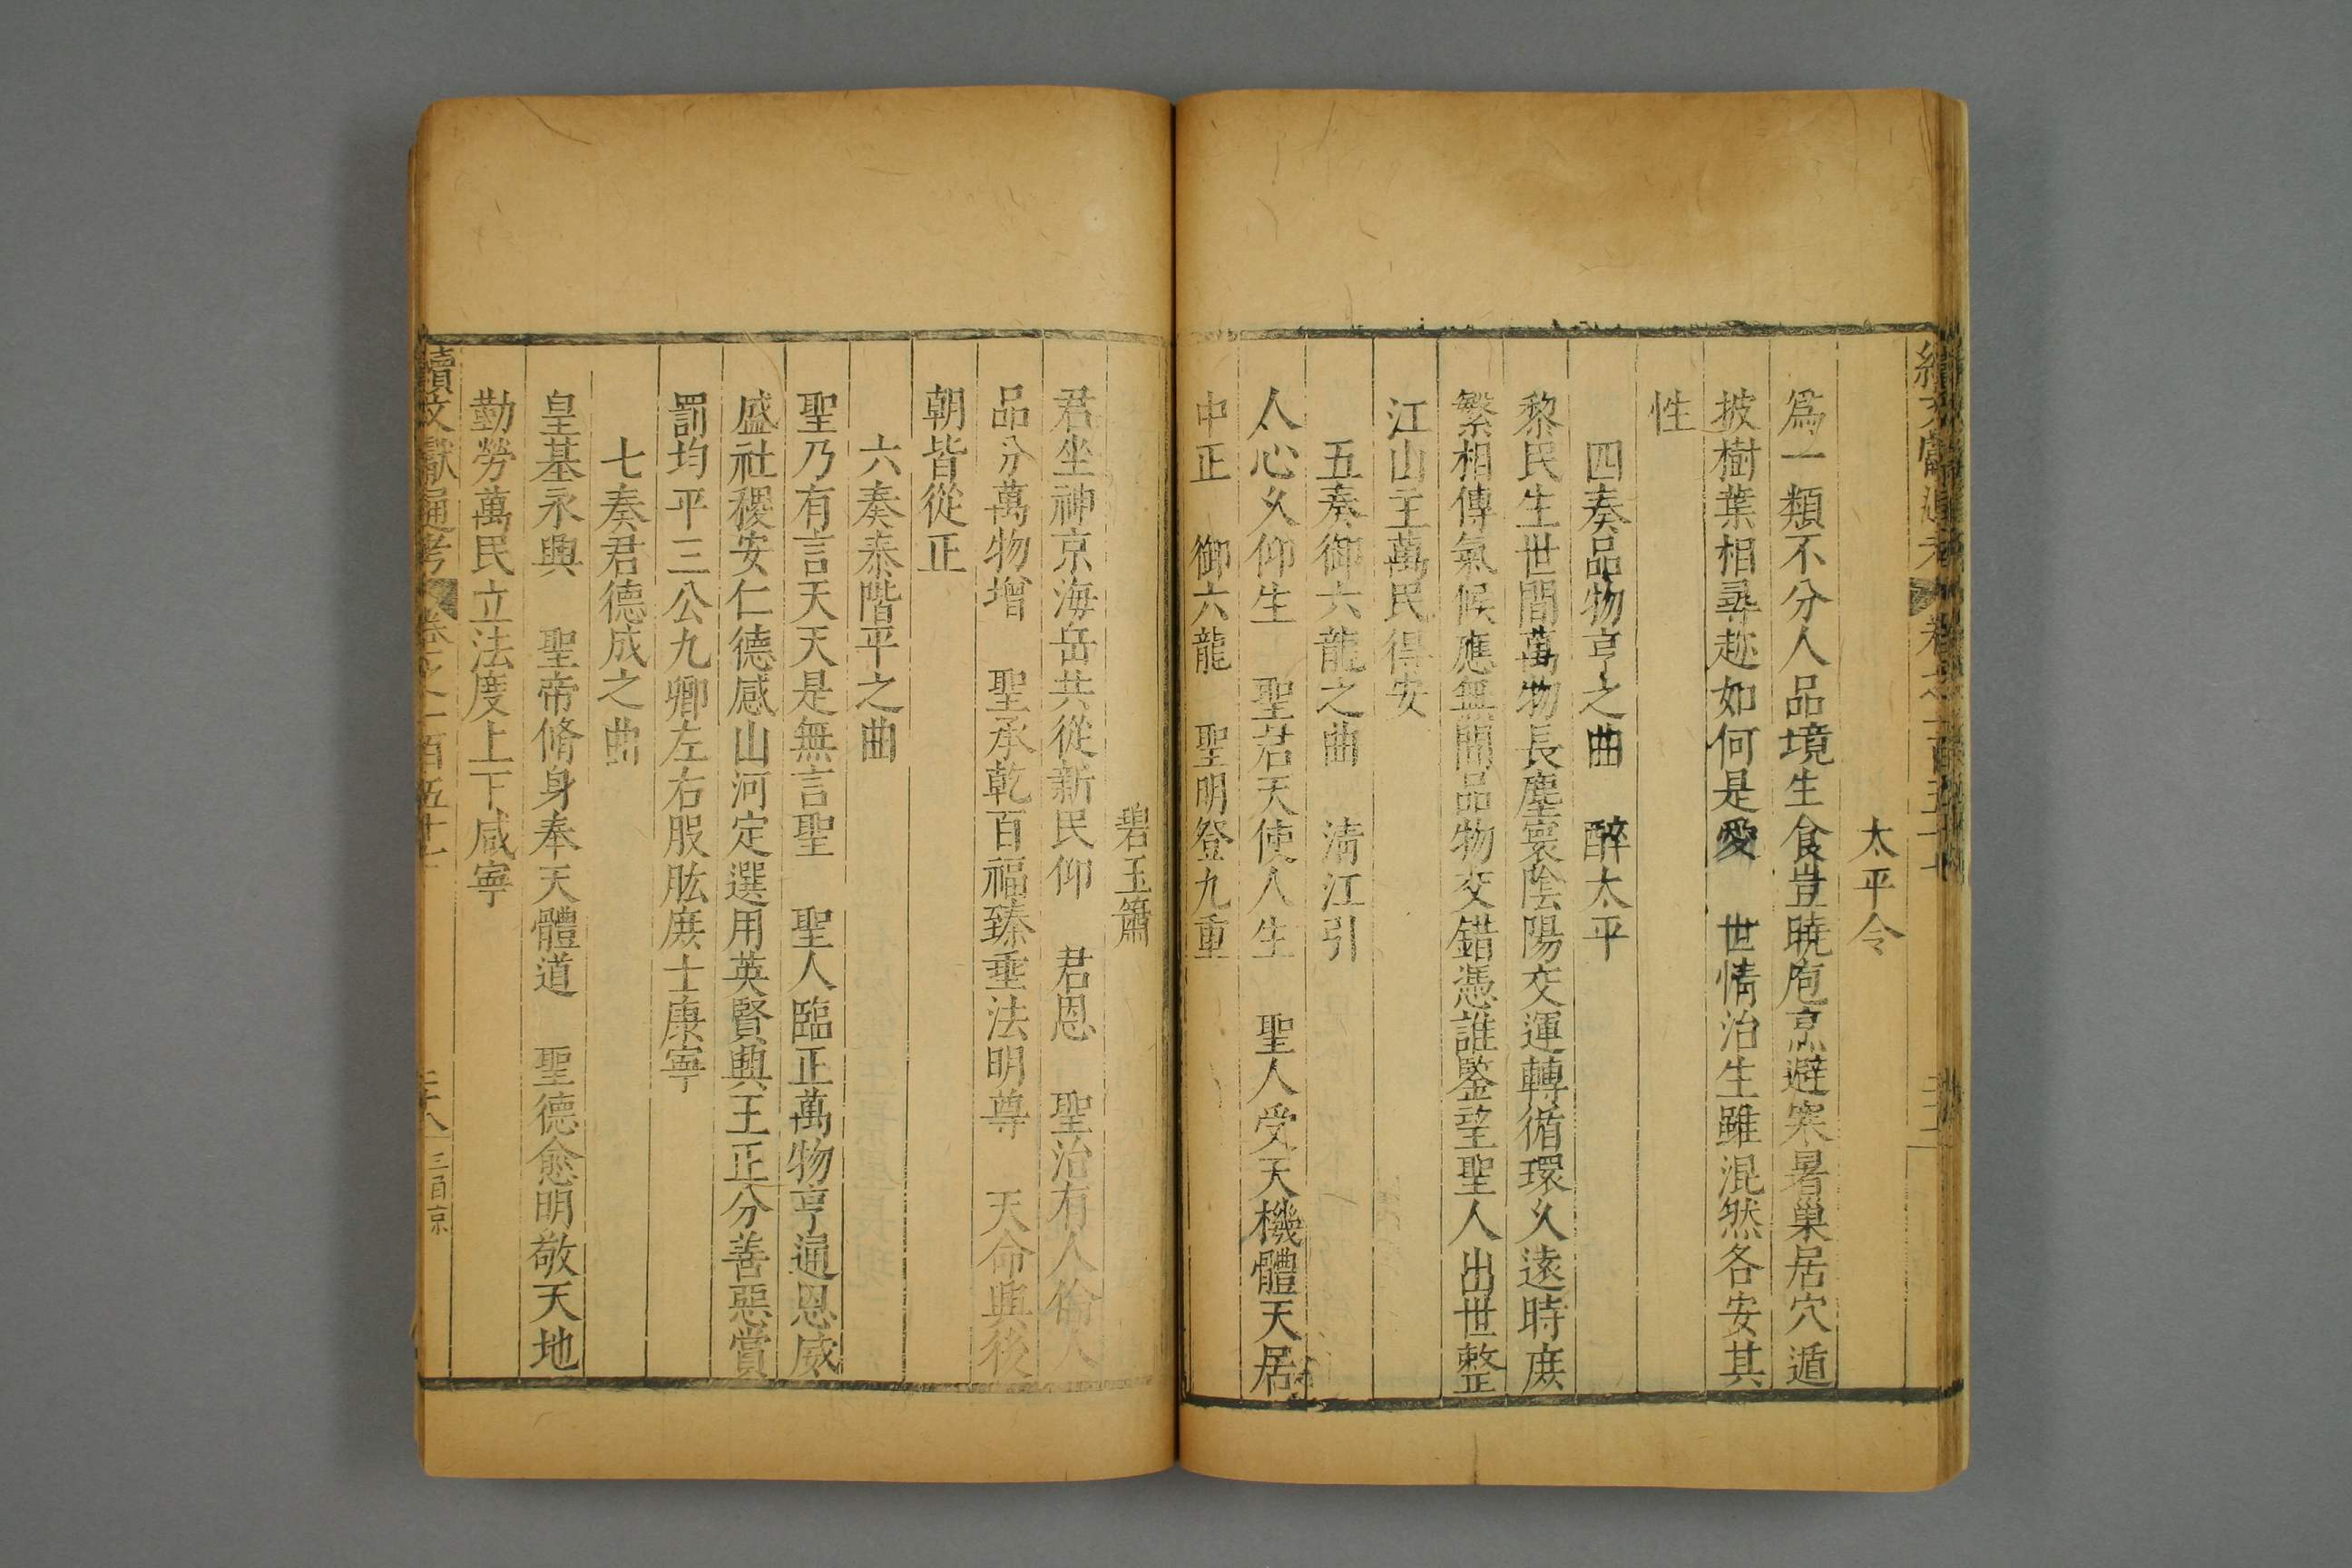 太平令
爲一類不分人品境生食豈曉庖烹避寒暑巢居穴遁
披樹葉相尋趂如何是愛　世情治生雖混然各安其
性
四奏品物亨之曲　醉太平
黎民生世間萬物長塵寰陰陽交運轉循環久遠時庶
繁相傳氣候應無間品物交錯憑誰鑒望聖人出世整
江山主萬民得安
五奏御六龍之曲　清江引
人心久仰生　聖君天使人生　聖人受天機體天居
中正　御六龍　聖明登九重
碧玉簫
君坐神京海岳共從新民仰　君恩　聖治有人倫人
品分萬物增　聖承乾百福臻垂法明尊　天命興後
朝皆從正
六奏泰階平之曲
聖乃有言天天是無言聖　聖人臨正萬物亨通恩威
盛社稷安仁德感山河定選用英賢興王正分善惡賞
罰均平三公九卿左右股肱庶士康寧
七奏君德成之曲
皇基永興　聖帝脩身奉天體道　聖德愈明敬天地
勤勞萬民立法度上下咸寧
續文獻通考　卷之一百五十七　三百京